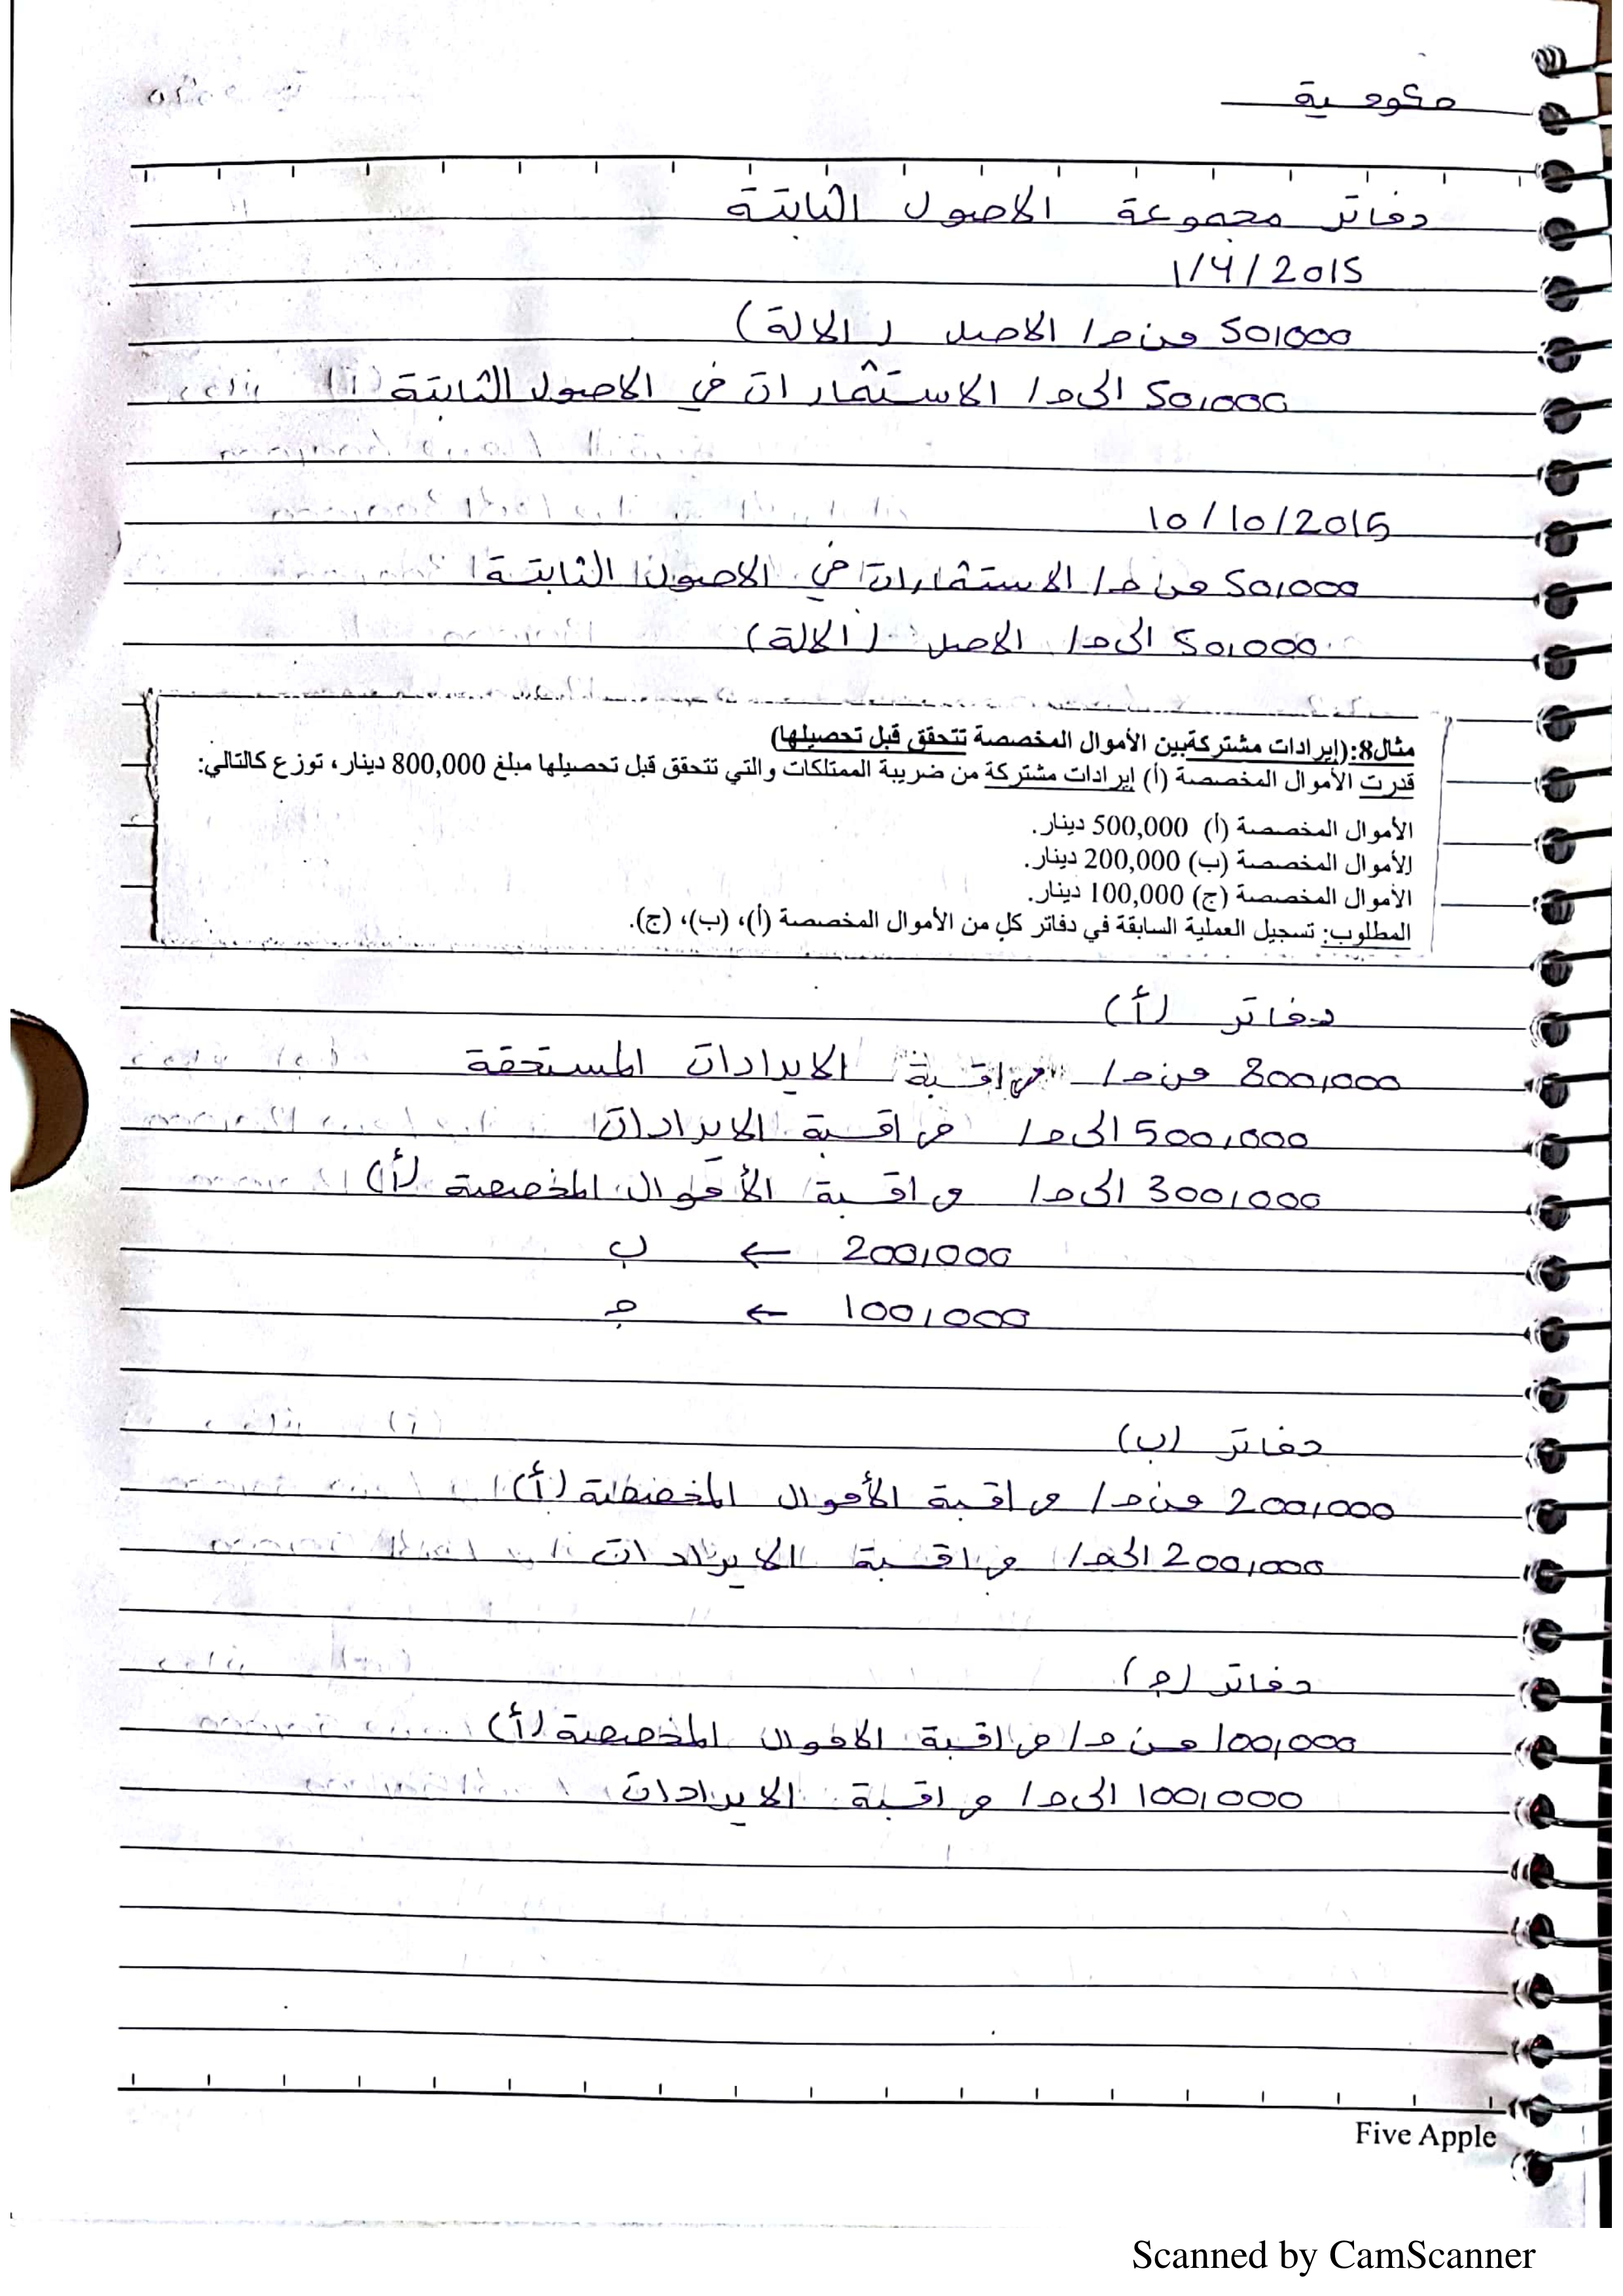 حكومية
دفاتر مجموعة الاصول الثابتة
1/4/2015
50,000 من ح/ الاصل (الالة)
50,000 الى ح/ الاستثمارات في الاصول الثابتة
10/10/2015
50,000 من ح/ الاستثمارات في الاصول الثابتة
50,000 الى ح/ الاصل (الالة)
مثال8:(إيرادات مشتركة بين الأموال المخصصة تتحقق قبل تحصيلها)
قدرت الأموال المخصصة (أ) إيرادات مشتركة من ضريبة الممتلكات والتي تتحقق قبل تحصيلها مبلغ 800,000 دينار، توزع كالتالي:
الأموال المخصصة (أ) 500,000 دينار.
الأموال المخصصة (ب) 200,000 دينار.
الأموال المخصصة (ج) 100,000 دينار.
المطلوب: تسجيل العملية السابقة في دفاتر كلٍ من الأموال المخصصة (أ)، (ب)، (ج).
دفاتر (أ)
800,000 من ح/ مراقبة الايرادات المستحقة
500,000 الى ح/ مراقبة الايرادات
300,000 الى ح/ مراقبة الأموال المخصصة (أ)
200,000 ← ب
100,000 ← ج
دفاتر (ب)
200,000 من ح/ مراقبة الأموال المخصصة (أ)
200,000 الى ح/ مراقبة الايرادات
دفاتر (ج)
100,000 من ح/ مراقبة الاموال المخصصة (أ)
100,000 الى ح/ مراقبة الايرادات
Five Apple
Scanned by CamScanner